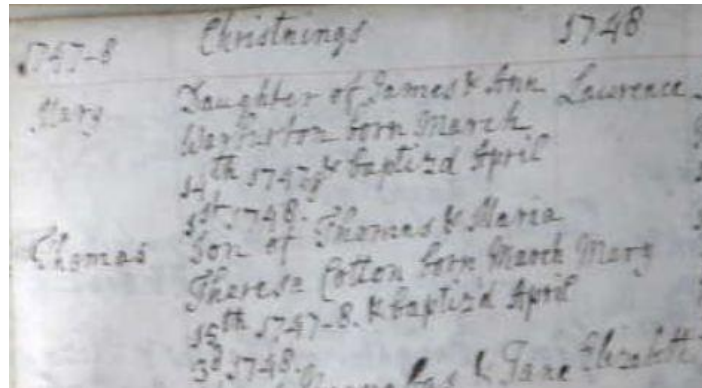 1747-8 Christnings 1748
Mary Daughter of James & Ann Laurence
Warburton born March
14th 1747-8 & baptizd April
1st 1748.
Thomas Son of Thomas & Maria
Theresa Cotton born March Mary
15th 1747-8. & baptizd April
3d 1748.
& Jane Elizabeth